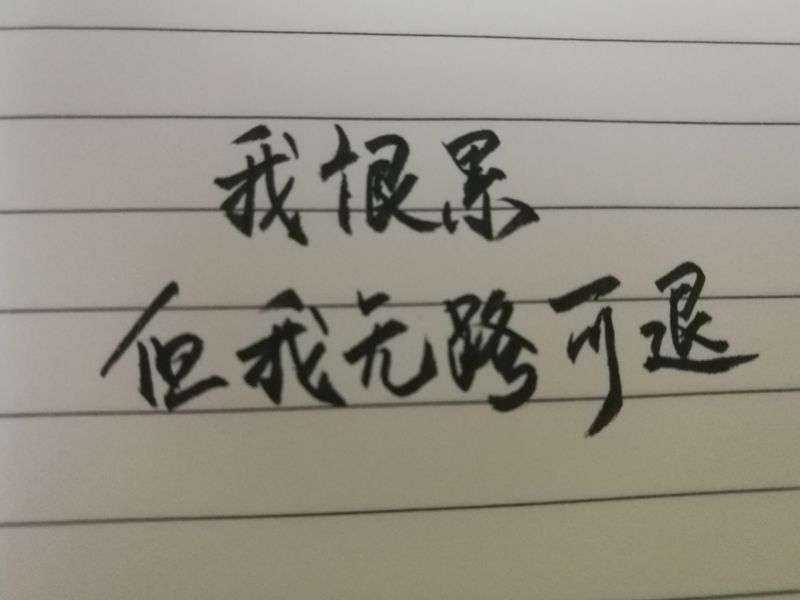 我恨累
但我无路可退